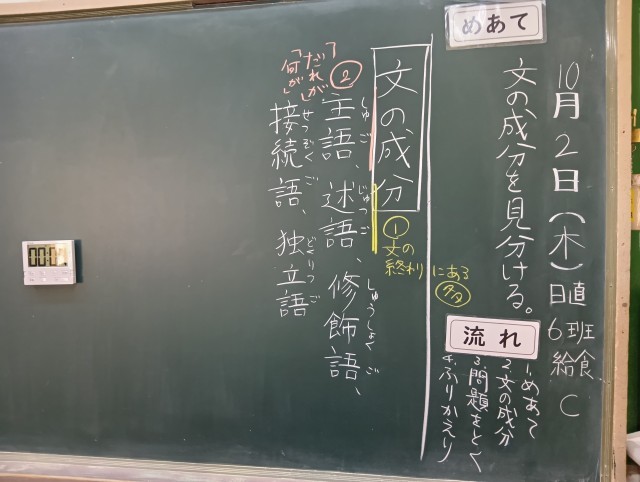 10月2日(木)日直6班
給食 C
めあて
文の成分を見分ける。
流れ
1.めあて
2.文の成分
3.問題をとく
4.ふりかえり
文の成分
①文の
終わりにある
多
しゅご じゅつご しゅうしょくご
主語、述語、修飾語、
②
「だれが」
「何が」
せつぞくご どくりつご
接続語、独立語